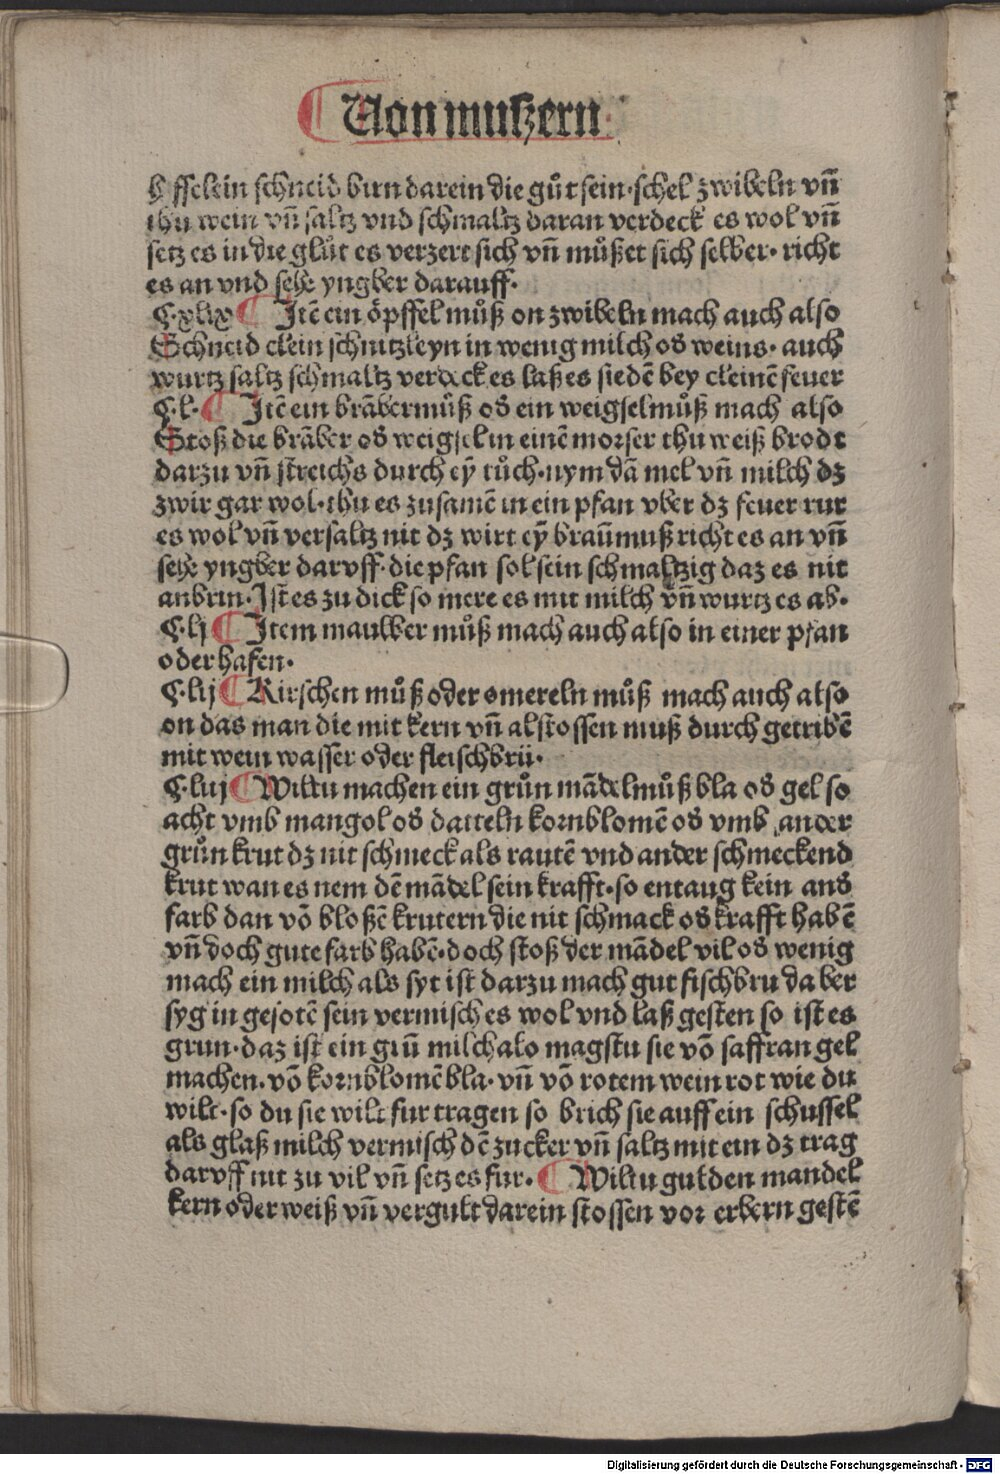 Von muszern
hesselein schneid birn darein die gůt sein·schel zwibeln vñ
thu wein vñ saltz vnd schmaltz daran verdeck es wol vñ
setz es in die glůt es verzert sich vñ můßet sich selber· richt
es an vnd sehe yngber darauff·
C·xlix ¶ Itē ein öpffel můß on zwibeln mach auch also
Schneid clein schnitzleyn in wenig milch oď weins· auch
wurtz saltz schmaltz verdeck es laß es siedē bey cleinē feuer
C·l· ¶ Itē ein brāber můß oď ein weigsel můß mach also
Stoß die brāber oď weigsel in einē morser thu weiß brodt
darzu vñ streichs durch eÿ tůch·nym dā mel vñ milch dz
zwir gar wol·thu es zusamē in ein pfan vber dz feuer rur
es wol vñ versaltz nit dz wirt eÿ braūmuß richt es an vñ
sehe yngber darvff·die pfan sol sein schmaltzig daz es nit
anbrin·Ist es zu dick so mere es mit milch vñ wurtz es ab·
C·lj ¶ Item maulber můß mach auch also in einer pfan
oder hafen·
C·lij ¶ Kirschen můß oder omereln můß mach auch also
on das man die mit kern vñ al stossen muß durch getribē
mit wein wasser oder fleischbrü·
C·liij ¶ Wiltu machen ein grůn mādelmůß bla oď gel so
acht vmb mangol oď datteln kornblomē oď vmb ander
grůn krut dz nit schmeck als rautē vnd ander schmeckend
krut wan es nem dē mādel sein krafft·so entaug kein anď
farb dan võ bloßē krutern die nit schmack oď krafft habē
vñ doch gute farb habē·doch stoß der mādel vil oď wenig
mach ein milch als syt ist darzu mach gut fischbru da ber
syg in gesotē sein vermisch es wol vnd laß gesten so ist es
grun·daz ist ein grū milch also magstu sie võ saffran gel
machen·võ kornblomē bla· vñ võ rotem wein rot wie du
wilt·so du sie wilt fur tragen so brich sie auff ein schussel
als glaß milch vermisch dē zucker vñ saltz mit ein dz trag
darvff nit zu vil vñ setz es fur· ¶ Wiltu gulden mandel
kern oder weiß vñ vergult darein stossen vor erbern gestē
Digitalisierung gefördert durch die Deutsche Forschungsgemeinschaft - DFG